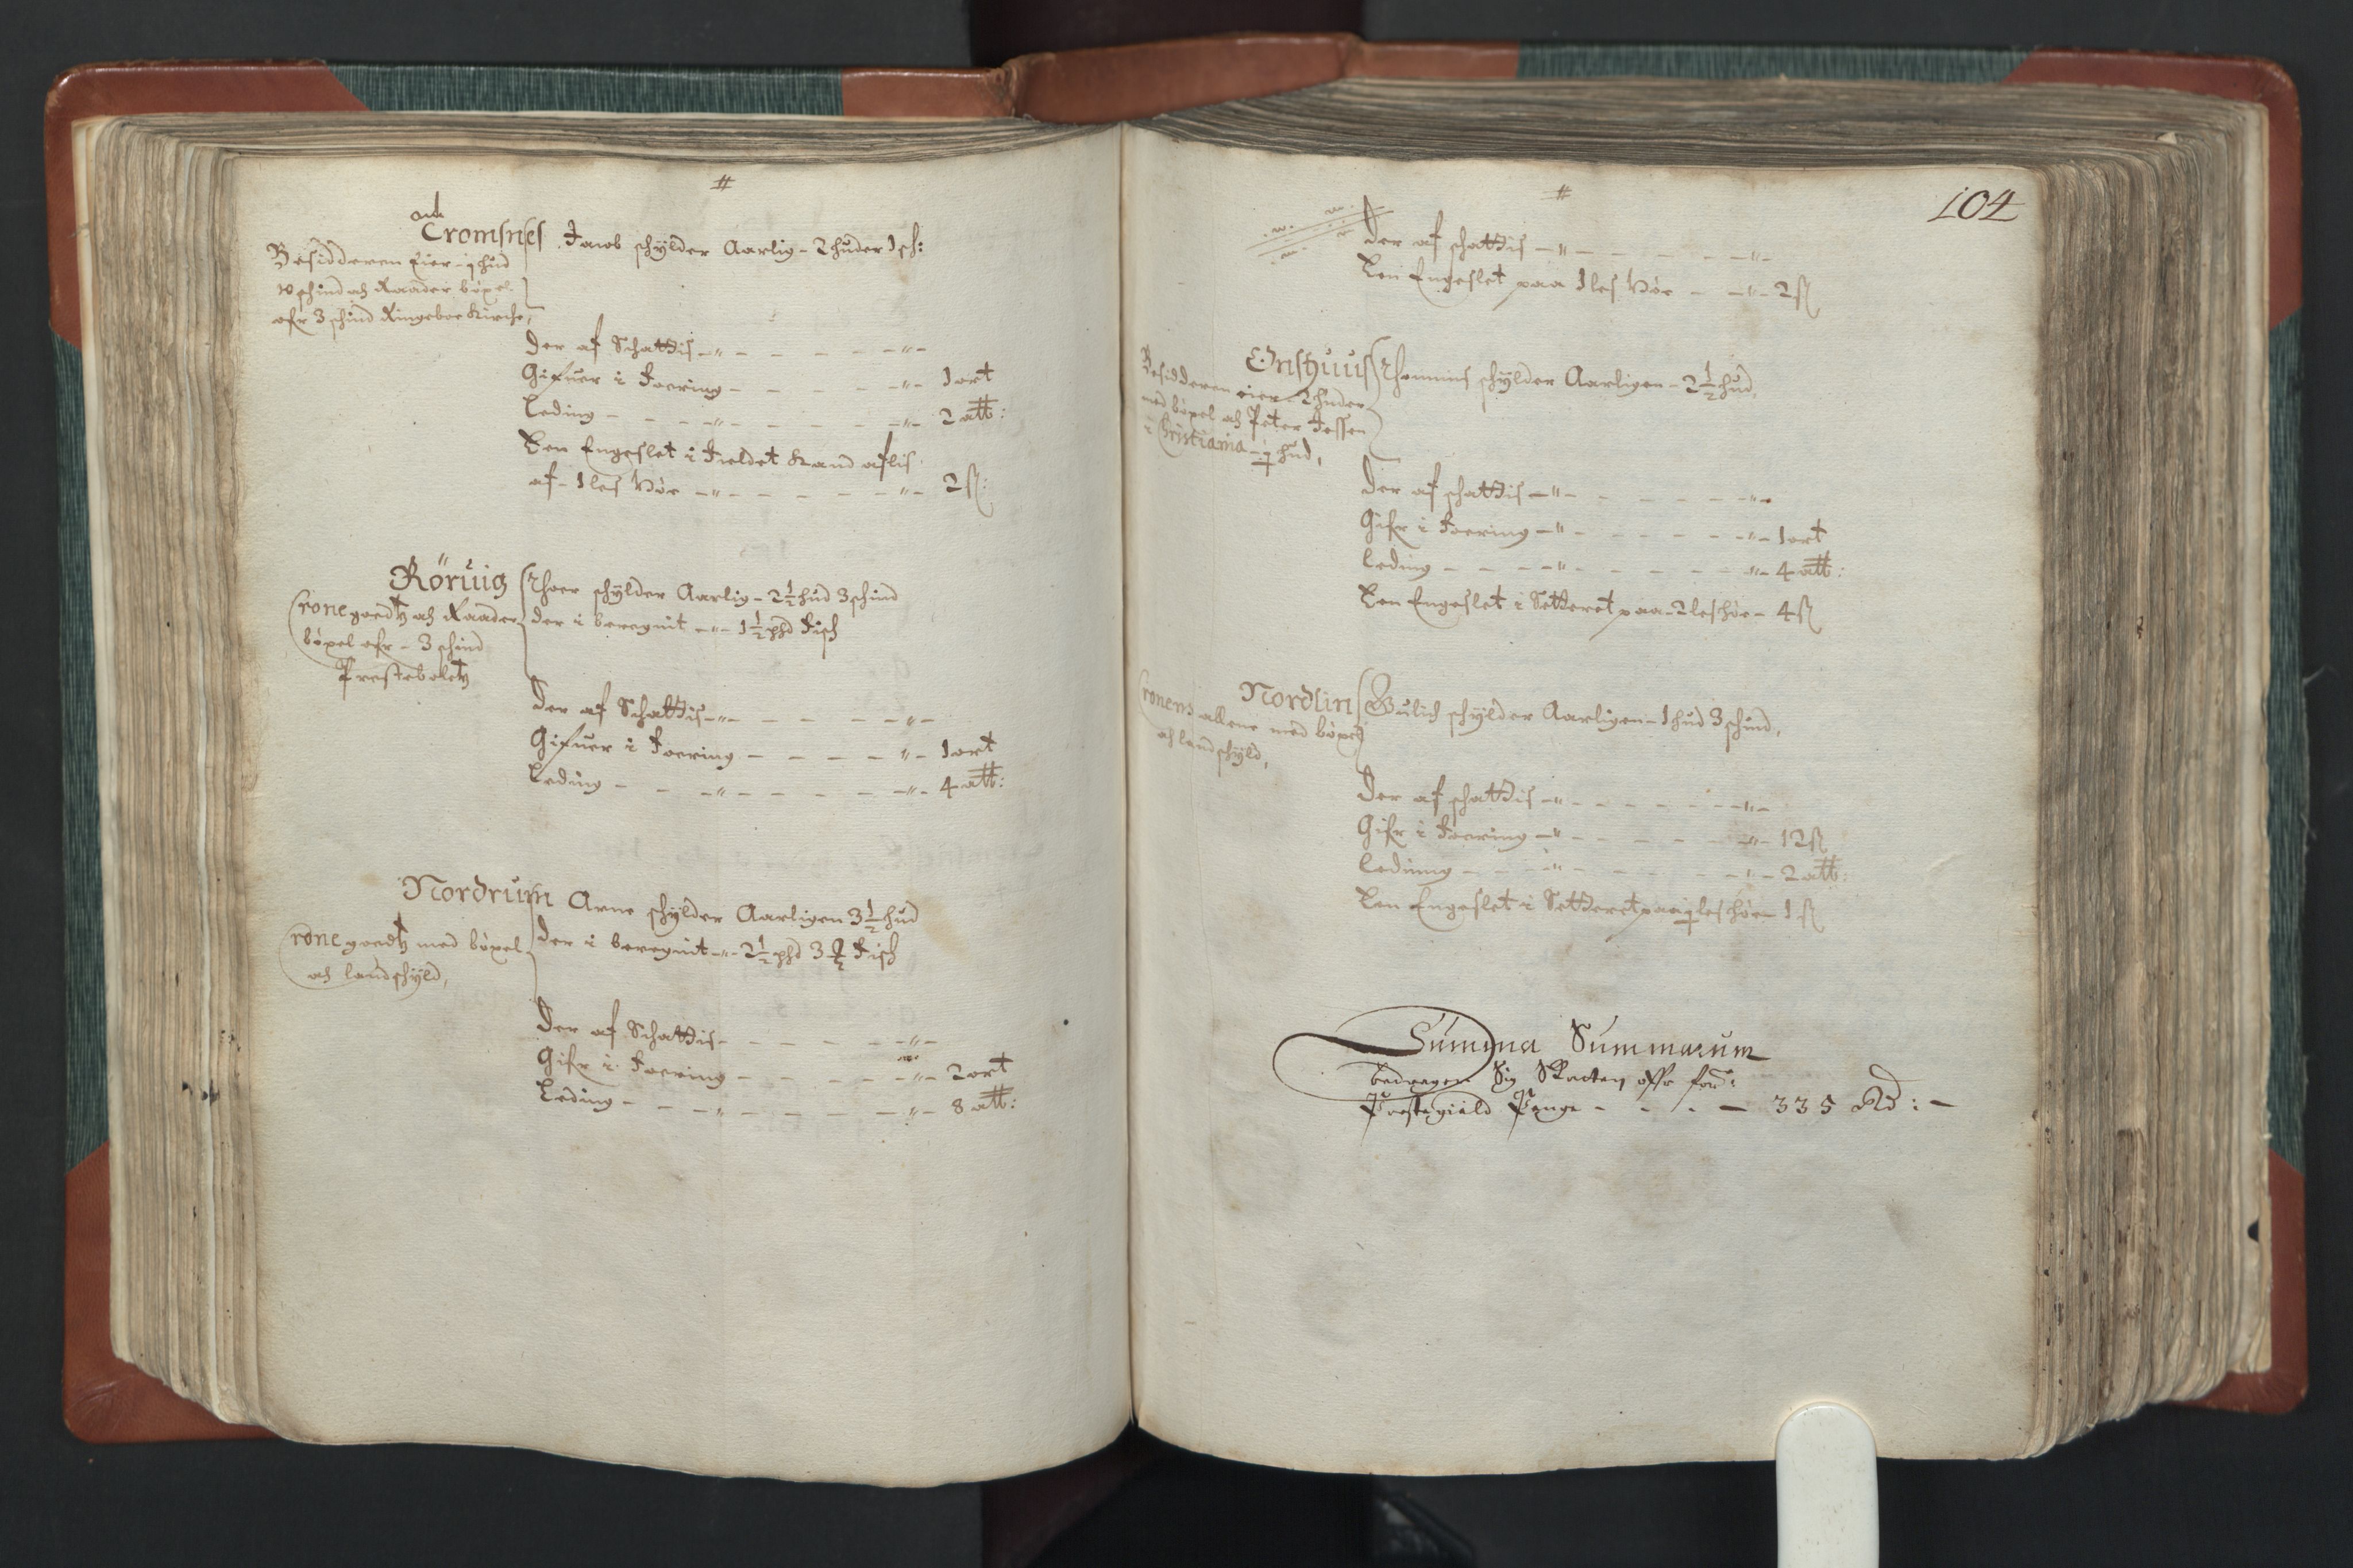 #
och
Cromsnes Jacob schylder Aarlig - 2 huder 1 sch:
Besidderen Eier - ½ hud
10 schind och Raader böxel
ofr 3 schind Ringeboe Kirche,
Der af Schattis - " -
Gifuer i Foering - " - 1 ort
Leding - " - 2 att:
Een Engeslet i Fieldet Kand aflis
af - 1 les Höe - " - 2 ß:
Röruig Thoer schylder Aarlig - 2½ hud 3 schind
Crone goedtz och Raader
der i beregnit - " - 1½ phd Fisch
böxel ofr - 3 schind
Prestebolet
Der af Schattis - " -
Gifuer i Foering - " - 1 ort
Leding - " - 4 att:
Nordrum Arne schylder Aarligen 3½ hud
Crone goedtz med böxel
der i beregnit - " - 2½ phd 3 Fisch
och landschyld,
Der af Schattis - " -
Gifr i Foering - " - 2 ort
Leding - " - 8 att:
#
104
Der af schattis - " -
Een Engeslet paa 1 les Höe - " - 2 ß
Onshuus Thommis schylder Aarligen - 2½ hud,
Besidderen eier - 2 huder
med böxel och Peter Jessen
i Christiania - ½ hud,
Der af schattis - " -
Gifr i Foering - " - 1 ort
Leding - " - 4 att:
Een Engeslet i Setteret paa - 2 les höe - 4 ß
Nordlin Gulich schylder Aarligen - 1 hud 3 schind,
Cronens allene med böxel
och landschyld,
Der af schattis - " -
Gifr i Foering - " - 12 ß
Ledinng - " - 2 att:
Een Engeslet i Setteret paa ½ les höe - 1 ß
Summa Summarum
bedragen Sig Skatten offr for:
Prestegield Penge - - - - 335 Rd: -